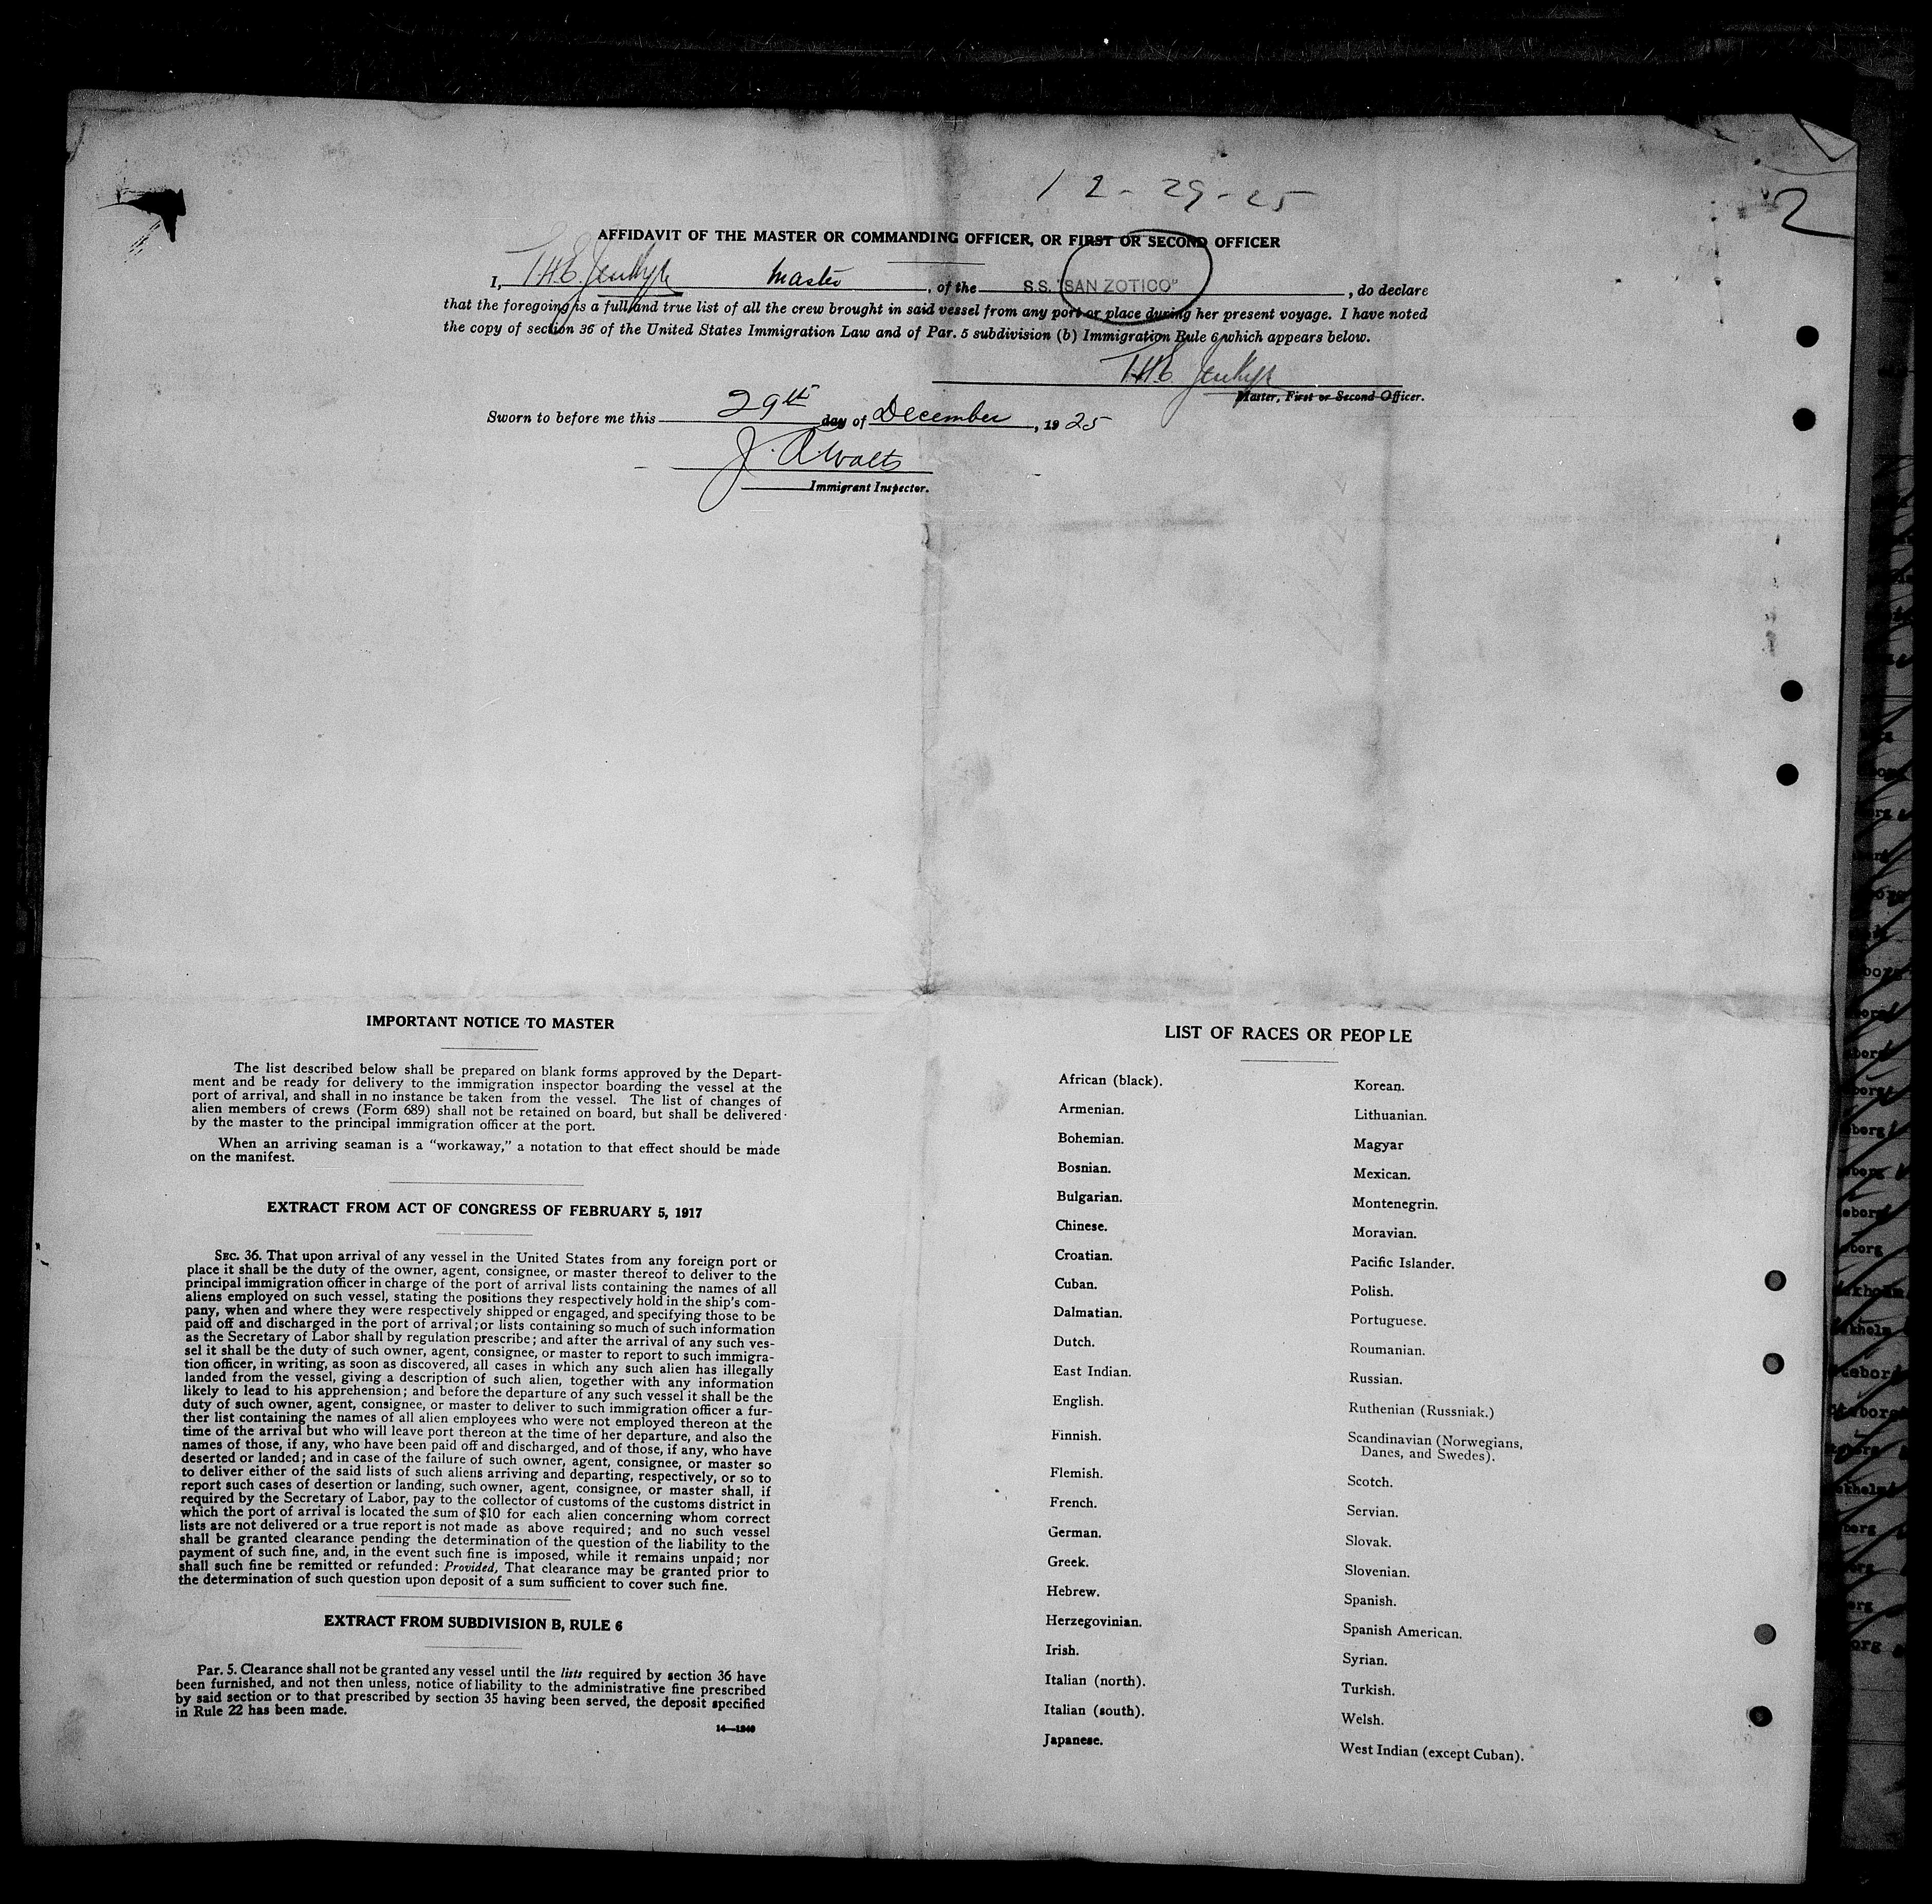 12-29-25
2
AFFIDAVIT OF THE MASTER OR COMMANDING OFFICER, OR FIRST OR SECOND OFFICER
I, T.H.E. Master, of the S.S. "SAN ZOTICO", do declare
that the foregoing is a full and true list of all the crew brought in said vessel from any port or place during her present voyage. I have noted
the copy of section 36 of the United States Immigration Law and of Par. 5 subdivision (b) Immigration Rule 6 which appears below.
T.H.E.
Master, First or Second Officer.
Sworn to before me this 29th day of December, 1925
J. A. Watts
Immigrant Inspector.
IMPORTANT NOTICE TO MASTER
The list described below shall be prepared on blank forms approved by the Depart-
ment and be ready for delivery to the immigration inspector boarding the vessel at the
port of arrival, and shall in no instance be taken from the vessel. The list of changes of
alien members of crews (Form 689) shall not be retained on board, but shall be delivered
by the master to the principal immigration officer at the port.
When an arriving seaman is a "workaway," a notation to that effect should be made
on the manifest.
EXTRACT FROM ACT OF CONGRESS OF FEBRUARY 5, 1917
SEC. 36. That upon arrival of any vessel in the United States from any foreign port or
place it shall be the duty of the owner, agent, consignee, or master thereof to deliver to the
principal immigration officer in charge of the port of arrival lists containing the names of all
aliens employed on such vessel, stating the positions they respectively hold in the ship's com-
pany, when and where they were respectively shipped or engaged, and specifying those to be
paid off and discharged in the port of arrival; or lists containing so much of such information
as the Secretary of Labor shall by regulation prescribe; and after the arrival of any such ves-
sel it shall be the duty of such owner, agent, consignee, or master to report to such immigra-
tion officer, in writing, as soon as discovered, all cases in which any such alien has illegally
landed from the vessel, giving a description of such alien, together with any information
likely to lead to his apprehension; and before the departure of any such vessel it shall be the
duty of such owner, agent, consignee, or master to deliver to such immigration officer a fur-
ther list containing the names of all alien employees who were not employed thereon at the
time of the arrival but who will leave port thereon at the time of her departure, and also the
names of those, if any, who have been paid off and discharged, and of those, if any, who have
deserted or landed; and in case of the failure of such owner, agent, consignee, or master so
to deliver either of the said lists of such aliens arriving and departing, respectively, or so to
report such cases of desertion or landing, such owner, agent, consignee, or master shall, if
required by the Secretary of Labor, pay to the collector of customs of the customs district in
which the port of arrival is located the sum of $10 for each alien concerning whom correct
lists are not delivered or a true report is not made as above required; and no such vessel
shall be granted clearance pending the determination of the question of the liability to the
payment of such fine, and, in the event such fine is imposed, while it remains unpaid; nor
shall such fine be remitted or refunded: Provided, That clearance may be granted prior to
the determination of such question upon deposit of a sum sufficient to cover such fine.
EXTRACT FROM SUBDIVISION B, RULE 6
Par. 5. Clearance shall not be granted any vessel until the lists required by section 36 have
been furnished, and not then unless, notice of liability to the administrative fine prescribed
by said section or to that prescribed by section 35 having been served, the deposit specified
in Rule 22 has been made.
14—1240
LIST OF RACES OR PEOPLE
African (black).
Armenian.
Bohemian.
Bosnian.
Bulgarian.
Chinese.
Croatian.
Cuban.
Dalmatian.
Dutch.
East Indian.
English.
Finnish.
Flemish.
French.
German.
Greek.
Hebrew.
Herzegovinian.
Irish.
Italian (north).
Italian (south).
Japanese.
Korean.
Lithuanian.
Magyar
Mexican.
Montenegrin.
Moravian.
Pacific Islander.
Polish.
Portuguese.
Roumanian.
Russian.
Ruthenian (Russniak.)
Scandinavian (Norwegians,
Danes, and Swedes).
Scotch.
Servian.
Slovak.
Slovenian.
Spanish.
Spanish American.
Syrian.
Turkish.
Welsh.
West Indian (except Cuban).